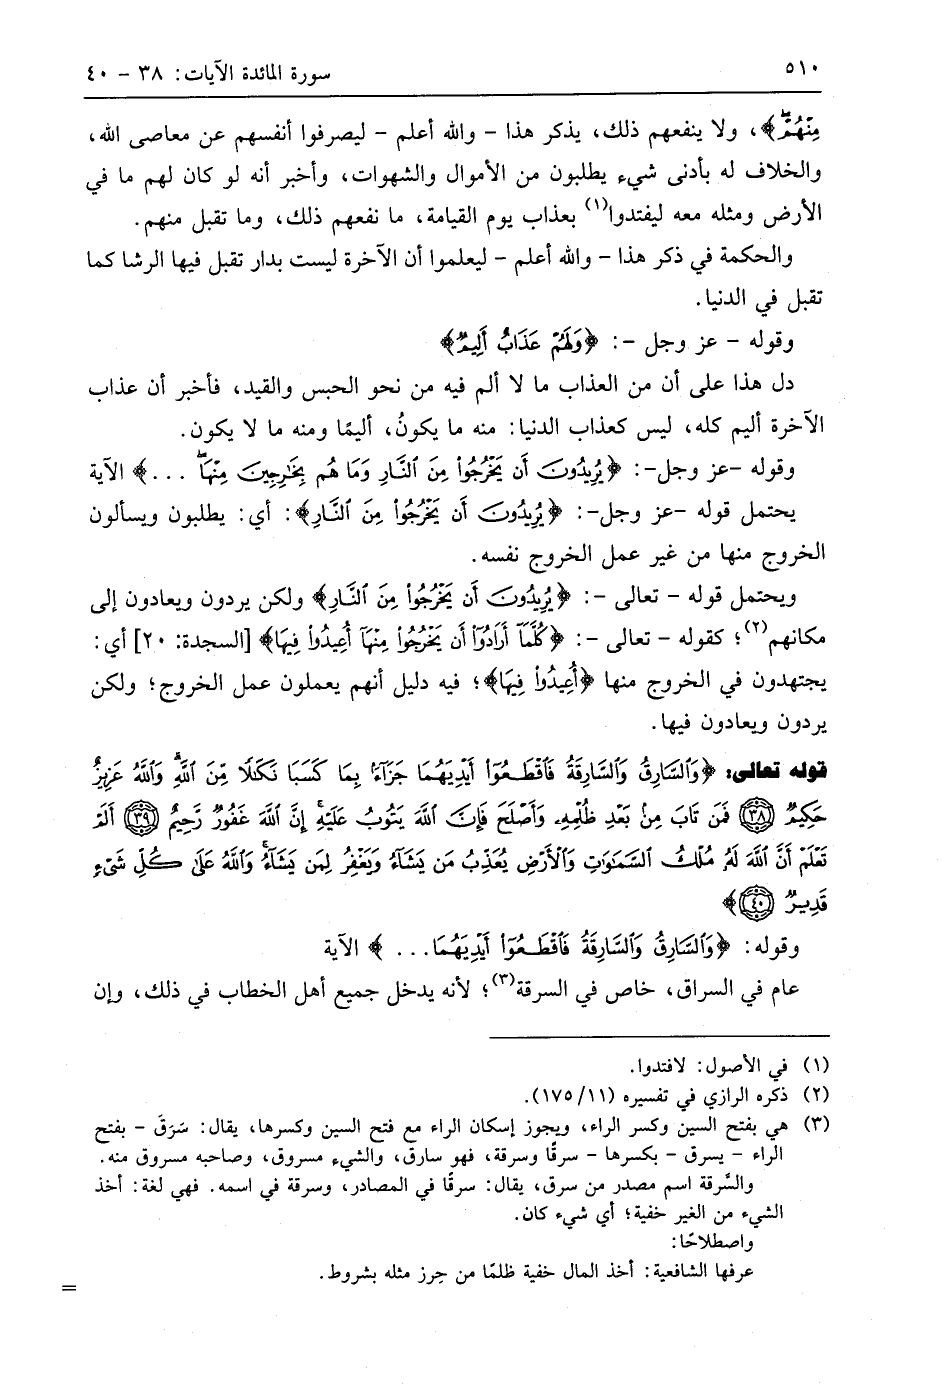 ٥١٠ سورة المائدة الآيات: ٣٨ - ٤٠
مِنْهُمْ﴾، ولا ينفعهم ذلك، يذكر هذا - والله أعلم - ليصرفوا أنفسهم عن معاصي الله،
والخلاف له بأدنى شيء يطلبون من الأموال والشهوات، وأخبر أنه لو كان لهم ما في
الأرض ومثله معه ليفتدوا(١) بعذاب يوم القيامة، ما نفعهم ذلك، وما تقبل منهم.
والحكمة في ذكر هذا - والله أعلم - ليعلموا أن الآخرة ليست بدار تقبل فيها الرشا كما
تقبل في الدنيا.
وقوله - عز وجل -: ﴿وَلَهُمْ عَذَابٌ أَلِيمٌ﴾
دل هذا على أن من العذاب ما لا ألم فيه من نحو الحبس والقيد، فأخبر أن عذاب
الآخرة أليم كله، ليس كعذاب الدنيا: منه ما يكونُ، أليمًا ومنه ما لا يكون.
وقوله -عز وجل-: ﴿يُرِيدُونَ أَن يَخْرُجُوا۟ مِنَ ٱلنَّارِ وَمَا هُم بِخَٰرِجِينَ مِنْهَاۖ ...﴾ الآية
يحتمل قوله -عز وجل-: ﴿يُرِيدُونَ أَن يَخْرُجُوا۟ مِنَ ٱلنَّارِ﴾: أي: يطلبون ويسألون
الخروج منها من غير عمل الخروج نفسه.
ويحتمل قوله - تعالى -: ﴿يُرِيدُونَ أَن يَخْرُجُوا۟ مِنَ ٱلنَّارِ﴾ ولكن يردون ويعادون إلى
مكانهم(٢)؛ كقوله - تعالى -: ﴿كُلَّمَآ أَرَادُوٓا۟ أَن يَخْرُجُوا۟ مِنْهَآ أُعِيدُوا۟ فِيهَا﴾ [السجدة: ٢٠] أي:
يجتهدون في الخروج منها ﴿أُعِيدُوا۟ فِيهَا﴾؛ فيه دليل أنهم يعملون عمل الخروج؛ ولكن
يردون ويعادون فيها.
قوله تعالى: ﴿وَٱلسَّارِقُ وَٱلسَّارِقَةُ فَٱقْطَعُوٓا۟ أَيْدِيَهُمَا جَزَآءًۢ بِمَا كَسَبَا نَكَٰلًا مِّنَ ٱللَّهِۗ وَٱللَّهُ عَزِيزٌ
حَكِيمٌ ﴿٣٨﴾ فَمَن تَابَ مِنۢ بَعْدِ ظُلْمِهِۦ وَأَصْلَحَ فَإِنَّ ٱللَّهَ يَتُوبُ عَلَيْهِۚ إِنَّ ٱللَّهَ غَفُورٌ رَّحِيمٌ ﴿٣٩﴾ أَلَمْ
تَعْلَمْ أَنَّ ٱللَّهَ لَهُۥ مُلْكُ ٱلسَّمَٰوَٰتِ وَٱلْأَرْضِ يُعَذِّبُ مَن يَشَآءُ وَيَغْفِرُ لِمَن يَشَآءُۗ وَٱللَّهُ عَلَىٰ كُلِّ شَىْءٍ
قَدِيرٌ ﴿٤٠﴾﴾
وقوله: ﴿وَٱلسَّارِقُ وَٱلسَّارِقَةُ فَٱقْطَعُوٓا۟ أَيْدِيَهُمَا...﴾ الآية
عام في السراق، خاص في السرقة(٣)؛ لأنه يدخل جميع أهل الخطاب في ذلك، وإن
(١) في الأصول: لافتدوا.
(٢) ذكره الرازي في تفسيره (١١/١٧٥).
(٣) هي بفتح السين وكسر الراء، ويجوز إسكان الراء مع فتح السين وكسرها، يقال: سَرَقَ - بفتح
الراء - يسرق - بكسرها - سرقًا وسرقة، فهو سارق، والشيء مسروق، وصاحبه مسروق منه.
والسَّرقة اسم مصدر من سرق، يقال: سرقًا في المصادر، وسرقة في اسمه. فهي لغة: أخذ
الشيء من الغير خفية؛ أي شيء كان.
واصطلاحًا:
عرفها الشافعية: أخذ المال خفية ظلمًا من حِرز مثله بشروط.
=